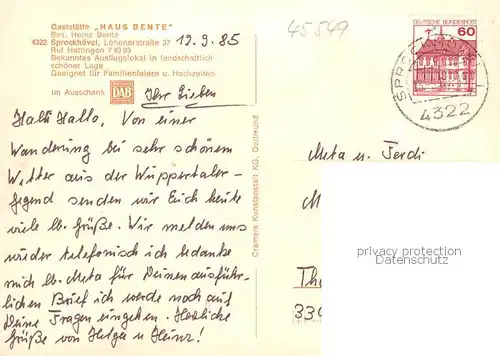 Gaststätte „HAUS BENTE"
Bes. Heinz Bente
4322 Sprockhövel, Löhenerstraße 37
Ruf Hattingen 7 43 93
Bekanntes Ausflugslokal in landschaftlich
schöner Lage
Geeignet für Familienfeiern u. Hochzeiten
Im Ausschank DAB
12.9.85
45549
Ihr Lieben
Hallo Hallo, Von einer
Wanderung bei sehr schönem
Wetter aus der Wuppertaler-
gegend senden wir Euch heute
viele lb. Grüße. Wir melden uns
wieder telefonisch ich bedanke
mich lb. Meta für Deinen ausführ-
lichen Brief ich werde noch auf
Deine Fragen eingehen. Herzliche
Grüße von Helga u Heinz!
Cramers Kunstanstalt KG, Dortmund
DEUTSCHE BUNDESPOST
60
SPROCKHÖVEL
4322
Meta u. Ferdi
M
Th
339
privacy protection
Datenschutz